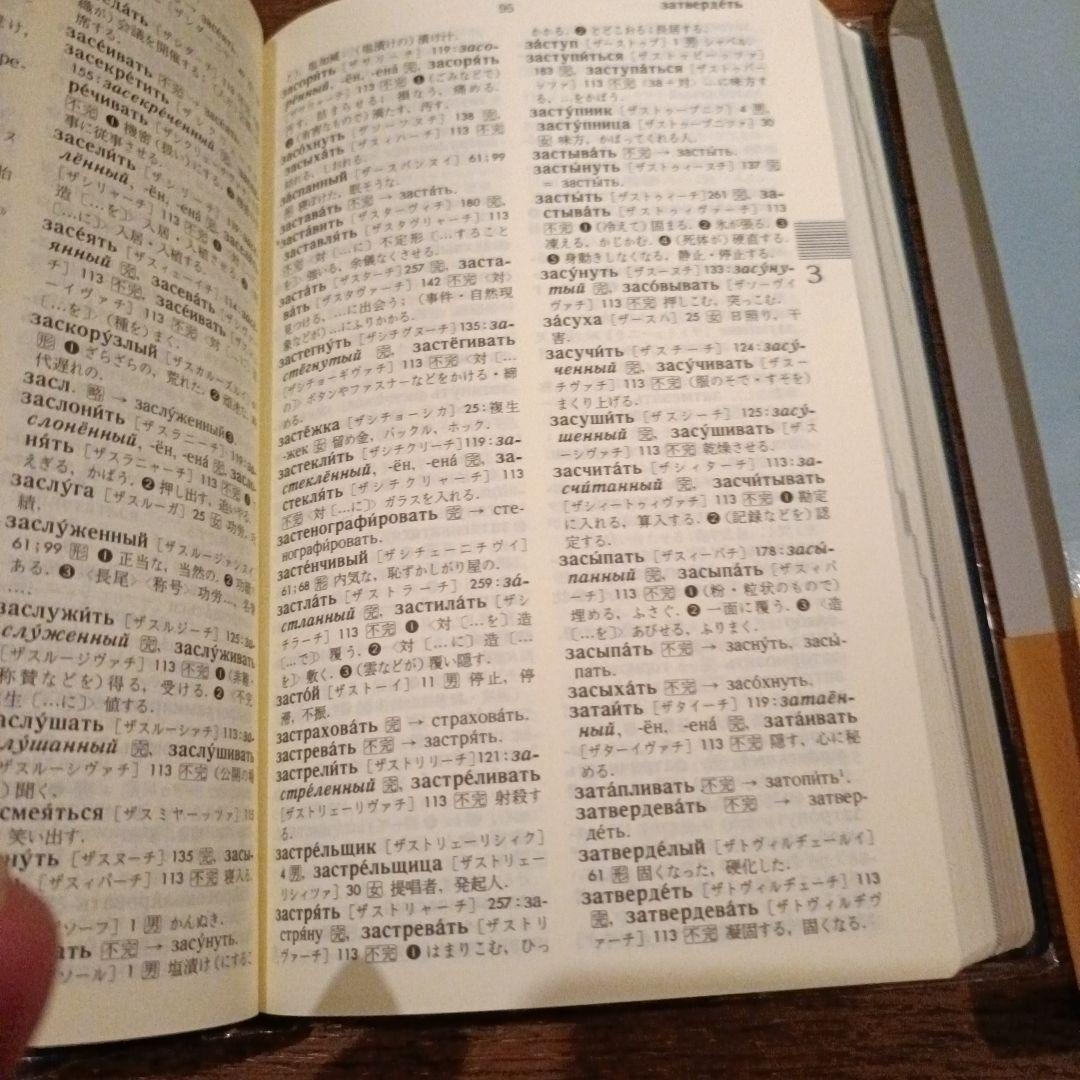 засе́ивать 不完
засекре́тить
155 : засекре́ченный
ре́чивать
засели́ть
лённый, -ён, -ена́ 完
засе́ять
янный 完, засева́ть
113 不完, засе́ивать
заскору́злый
代遅れの.
засл. 略 → заслу́женный❸.
заслони́ть [ザスラニーチ] 119 :
слонённый, -ён, -ена́ 完
ня́ть [ザスラニャーチ] 113 不完
えぎる, かばう. ❷ 押し出す,
заслу́га [ザスルーガ] 25 女 功労,
績.
заслу́женный
61 ; 99 形 ❶ 正当な, 当然の. ❷
ある. ❸ 〈長尾〉〈称号〉功労…,
заслужи́ть [ザスルジーチ] 125 :
слу́женный 完, заслу́живать
[ザスルージヴァチ] 113 不完 ❶
称賛などを) 得る, 受ける. ❷
生 〔…に〕〉 値する.
заслу́шать [ザスルーシァチ] 113 :
лу́шанный 完, заслу́шивать
ザスルーシヴァチ] 113 不完 (公開の
) 聞く.
смея́ться [ザスミヤーッツァ]
笑い出す.
ну́ть [ザスヌーチ] 135 完, засы-
[ザスィパーチ] 113 不完 寝入る.
ソーフ] 1 男 かんぬき.
ать 不完 → засу́нуть.
ソール] 1 男 塩漬け
95
засори́ть [ザサリーチ] 119 : засо-
рённый, -ён, -ена́ 完, засоря́ть
[ザサリャーチ] 113 不完 ❶ (ごみなどで)
汚す, 詰まらせる; 損なう, 痛める.
❷ (有害なもので) 満たす, 汚す.
засо́хнуть [ザソーフヌチ] 138 完,
засыха́ть [ザスィハーチ] 113 不完
枯れる, しおれる.
за́спанный [ザースパンヌィ] 61 ; 99
形 寝ぼけた, 眠そうな.
застава́ть 不完 → заста́ть.
заста́вить [ザスターヴィチ] 180 完,
заставля́ть [ザスタヴリャーチ] 113
不完 〈対 〔…に〕 不定形 〔…すること
を〕〉 強いる, 余儀なくさせる.
заста́ть [ザスターチ] 257 完, заста-
ва́ть [ザスタヴァーチ] 142 不完 〈対〉
見つける, …に出会う; (事件・自然現
象などが) …にふりかかる.
застегну́ть [ザシチグヌーチ] 135 : за-
стёгнутый 完, застёгивать
[ザシチョーギヴァチ] 113 不完 〈対 〔…
の〕〉 ボタンやファスナーなどをかける・締
める.
застёжка [ザシチョーシカ] 25 : 複生
-жек 女 留め金, バックル, ホック.
застекли́ть [ザシチクリーチ] 119 : за-
стеклённый, -ён, -ена́ 完, за-
стекля́ть [ザシチクリャーチ] 113
不完 〈対 〔…に〕〉 ガラスを入れる.
застенографи́ровать 完 → сте-
нографи́ровать.
засте́нчивый [ザシチェーンチヴィ]
61 ; 68 形 内気な, 恥ずかしがり屋の.
застла́ть [ザストラーチ] 259 : за́-
стланный 完, застила́ть [ザシ
チラーチ] 113 不完 ❶ 〈対 〔…を〕 造
〔…で〕〉 覆う. ❷ 〈対 〔…に〕 造 〔…
を〕〉 敷く. ❸ (雲などが) 覆い隠す.
засто́й [ザストーイ] 11 男 停止, 停
滞, 不振.
застрахова́ть 完 → страхова́ть.
застрева́ть 不完 → застря́ть.
застрели́ть [ザストリリーチ] 121 : за-
стре́ленный 完, застре́ливать
[ザストリェーリヴァチ] 113 不完 射殺す
る.
застре́льщик [ザストリェーリシィク]
4 男, застре́льщица [ザストリェー
リシィツァ] 30 女 提唱者, 発起人.
застря́ть [ザストリャーチ] 257 : за-
стря́ну 完, застрева́ть [ザストリ
ヴァーチ] 113 不完 ❶ はまりこむ, ひっ
затверде́ть
かかる. ❷ とどこおる; 長居する.
за́ступ [ザーストゥプ] 1 男 シャベル.
заступи́ться [ザストゥピーッツァ]
183 完, заступа́ться [ザストゥパー
ッツァ] 113 不完 〈за + 対〉 …に味方す
る, …をかばう.
засту́пник [ザストゥープニク] 4 男,
засту́пница [ザストゥープニツァ] 30
女 味方, かばってくれる人.
застыва́ть 不完 → засты́ть.
засты́нуть [ザストゥィーヌチ] 137 完
= засты́ть.
засты́ть [ザストゥィーチ] 261 完, за-
стыва́ть [ザストゥィヴァーチ] 113
不完 ❶ (冷えて) 固まる. ❷ 氷が張る. ❸
凍える, かじかむ. ❹ (死体が) 硬直する.
❺ 身動きしなくなる, 静止・停止する.
засу́нуть [ザスーヌチ] 133 : засу́ну-
тый 完, засо́вывать [ザソーヴィ
ヴァチ] 113 不完 押しこむ, 突っこむ.
за́суха [ザースハ] 25 女 日照り, 干
害.
засучи́ть [ザスチーチ] 124 : засу́-
ченный 完, засу́чивать [ザスー
チヴァチ] 113 不完 (服のそで・すそを)
まくり上げる.
засуши́ть [ザスシーチ] 125 : засу́-
шенный 完, засу́шивать [ザス
ーシヴァチ] 113 不完 乾燥させる.
засчита́ть [ザシィターチ] 113 : за-
счи́танный 完, засчи́тывать
[ザシィートゥィヴァチ] 113 不完 ❶ 勘定
に入れる, 算入する. ❷ (記録などを) 認
定する.
засы́пать [ザスィーパチ] 178 : засы́-
панный 完, засыпа́ть [ザスィパ
ーチ] 113 不完 ❶ (粉・粒状のもので)
埋める, ふさぐ. ❷ 一面に覆う. ❸ 〈造
〔…を〕〉 あびせる, ふりまく.
засыпа́ть 不完 → засну́ть, засы́-
пать.
засыха́ть 不完 → засо́хнуть.
затаи́ть [ザタイーチ] 119 : затаён-
ный, -ён, -ена́ 完, зата́ивать
[ザターイヴァチ] 113 不完 隠す, 心に秘
める.
зата́пливать 不完 → затопи́ть¹.
затвердева́ть 不完 → затвер-
де́ть.
затверде́лый [ザトヴィルヂェールィ]
61 形 固くなった, 硬化した.
затверде́ть [ザトヴィルヂェーチ]
完, затвердева́ть [ザトヴィルヂヴ
ァーチ] 113 不完 凝固する, 固くなる.
З